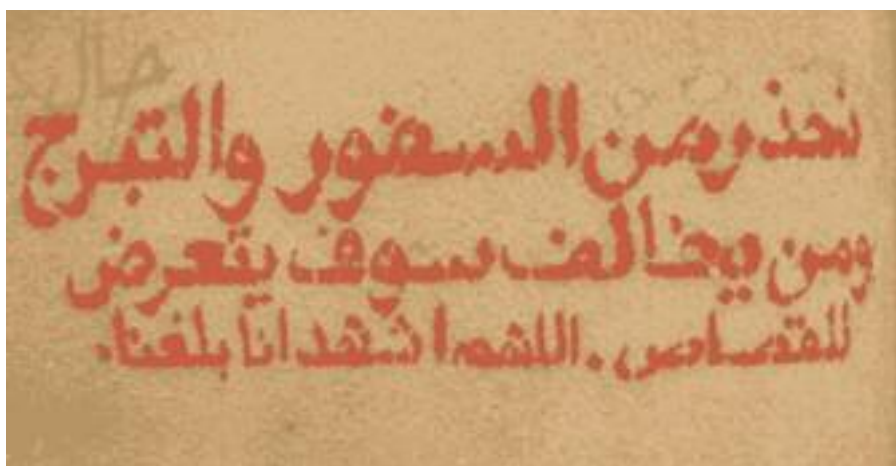 نحذر من السفور والتبرج
ومن يخالف سوف يتعرض
للقصاص. اللهم اشهد انا بلغنا.